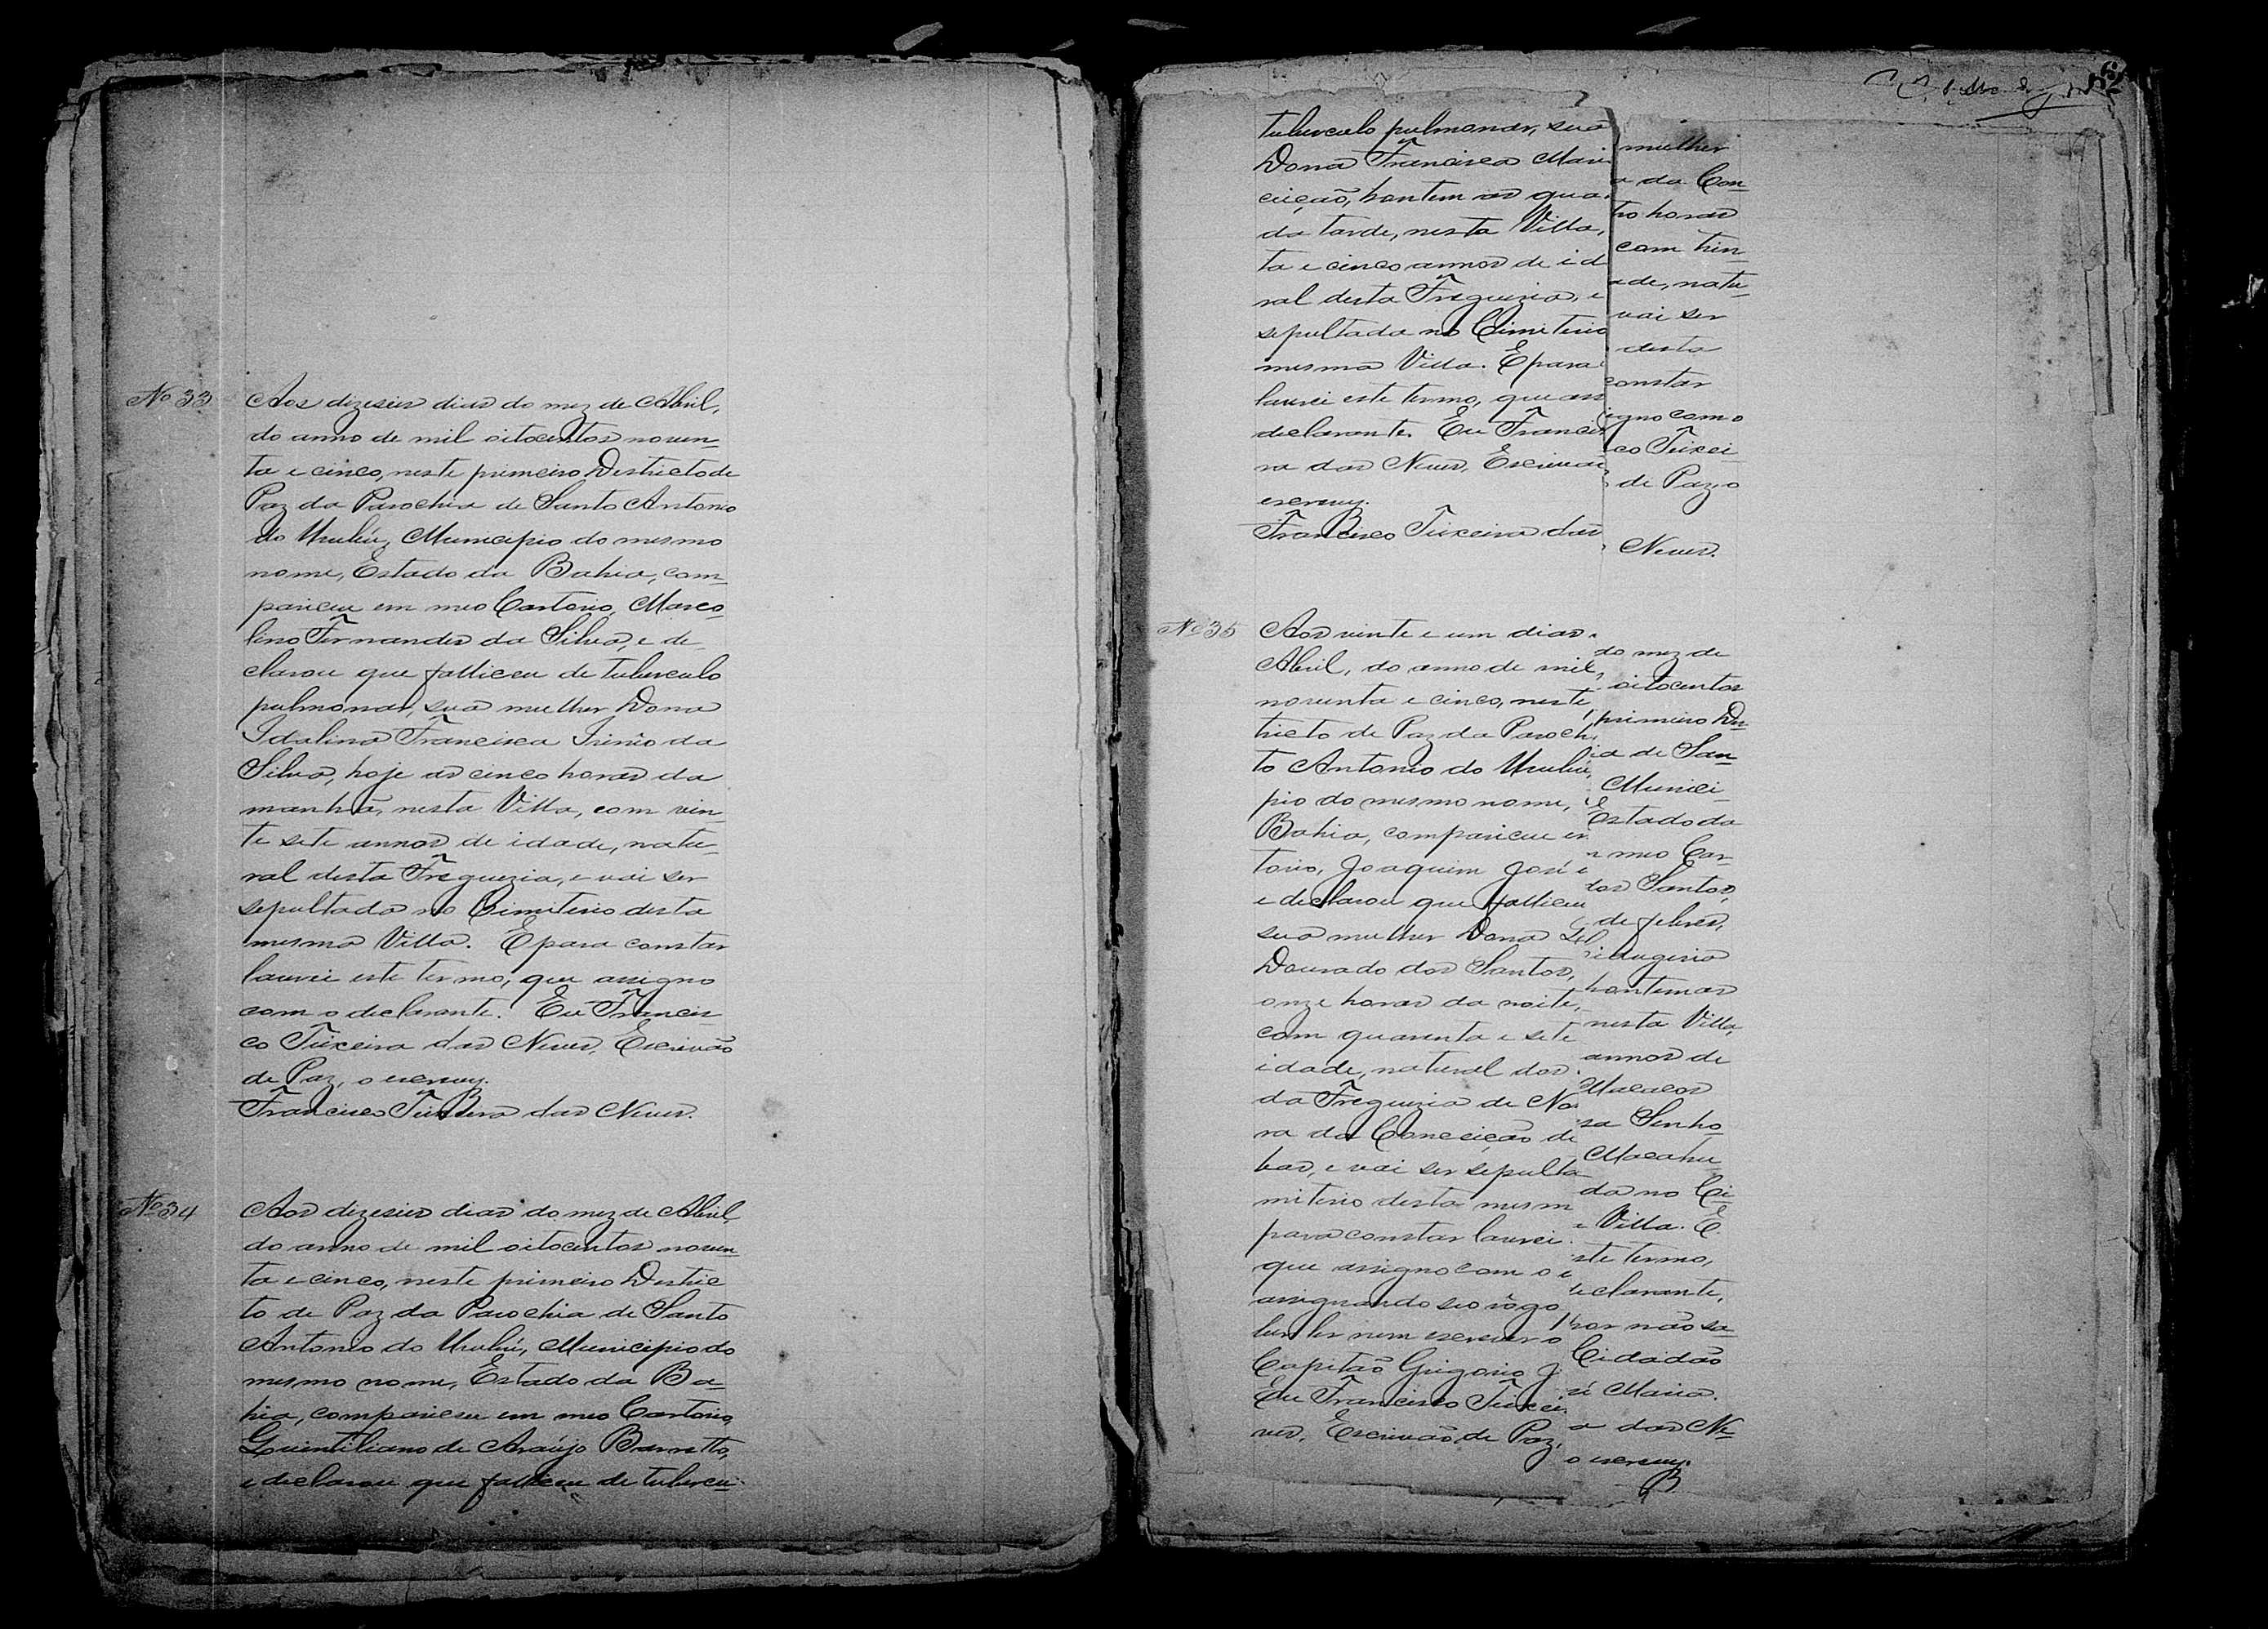 Nº 33
Aos dezeseis dias do mez de Abril,
do anno de mil oitocentos noven-
ta e cinco, neste primeiro Destricto de
Paz da Parochia de Santo Antonio
do Urubú, Municipio do mesmo
nome, Estado da Bahia, com-
pareceu em meo Cartorio, Marco-
lino Fernandes da Silva, e de-
clarou que falleceu de tuberculo
pulmonar, sua mulher Dona
Idalina Francisca Irinéo da
Silva, hoje as cinco horas da
manhã, nesta Villa, com vin-
te sete annos de idade, natu-
ral desta Freguezia, e vai ser
sepultada no Cimiterio desta
mesma Villa. E para constar
lavrei este termo, que assigno
com o declarante. Eu Francis-
co Teixeira das Neves, Escrivão
de Paz, o escrevy.
Francisco Teixeira das Neves.
Nº 34
Aos dezeseis dias do mez de Abril,
do anno de mil oitocentos noven-
ta e cinco, neste primeiro Destric-
to de Paz da Parochia de Santo
Antonio do Urubú, Municipio do
mesmo nome, Estado da Ba-
hia, compareceu em meo Cartorio,
Quintiliano de Araújo Barretto,
e declarou que falleceu de tubercu-
62
tuberculo pulmonar, sua mulher
Dona Francisca Maria da Con-
ceição, hontem as quatro horas
da tarde, nesta Villa, com trin-
ta e cinco annos de idade, natu-
ral desta Freguezia, e vai ser
sepultada no Cimiterio desta
mesma Villa. E para constar
lavrei este termo, que assigno com o
declarante. Eu Francisco Teixei-
ra das Neves, Escrivão de Paz, o
escrevy.
Francisco Teixeira das Neves.
Nº 35
Aos vinte e um dias do mez de
Abril, do anno de mil oitocentos
noventa e cinco, neste primeiro Des-
tricto de Paz da Parochia de San-
to Antonio do Urubú, Munici-
pio do mesmo nome, Estado da
Bahia, compareceu em meo Car-
torio, Joaquim José dos Santos,
e declarou que falleceu de febres,
sua mulher Dona
Dourado dos Santos, hontem as
onze horas da noite, nesta Villa,
com quarenta e sete annos de
idade, natural dos Macacos
da Freguezia de Nossa Senho-
ra da Conceição de Macahu-
bas, e vai ser sepultada no Ci-
miterio desta mesma Villa. E
para constar lavrei este termo,
que assigno com o declarante,
assignando seo rôgo por não sa-
ber ler nem escrever o Cidadão
Capitão Grigorio José Maria.
Eu Francisco Teixeira das Ne-
ves, Escrivão de Paz, o escrevy.